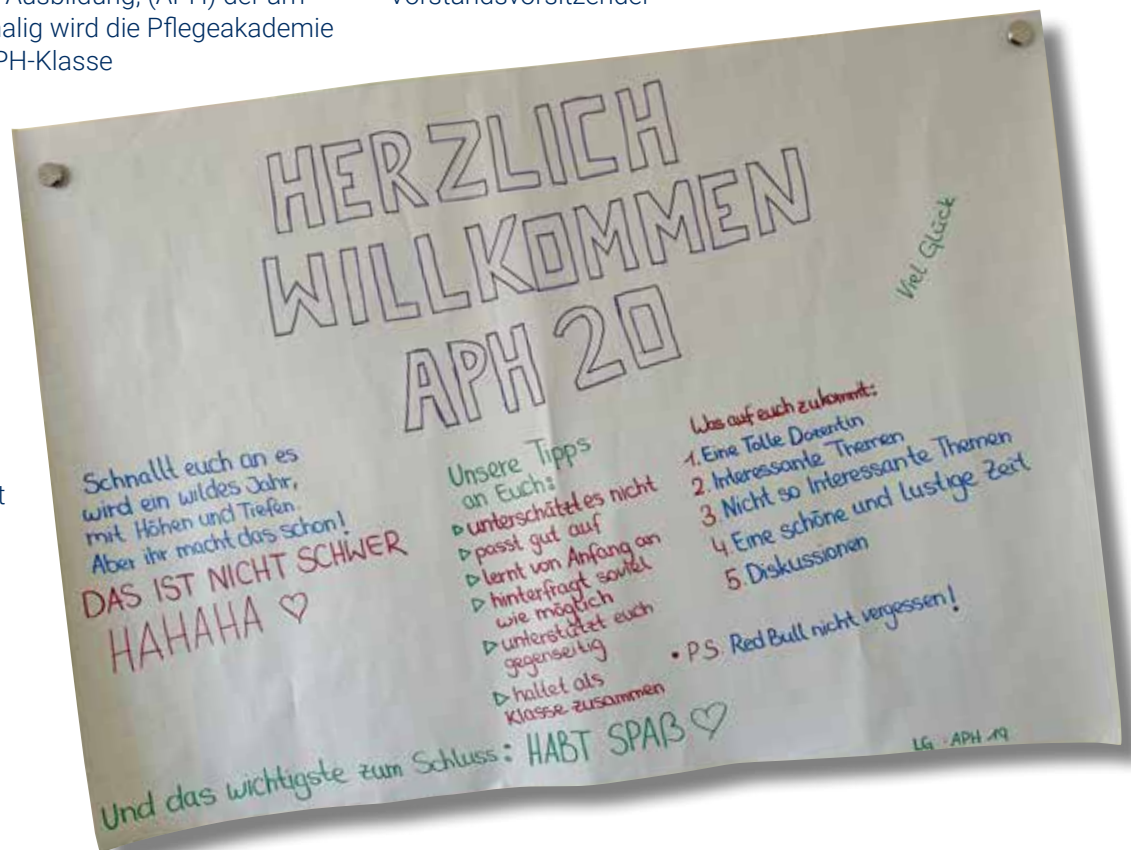 Ausbildung, (APH) der am
wird die Pflegeakademie
PH-Klasse
Vorstandsvorsitzender
HERZLICH
WILLKOMMEN
APH 20
Viel Glück
Schnallt euch an es
wird ein wildes Jahr,
mit Höhen und Tiefen.
Aber ihr macht das schon!
DAS IST NICHT SCHWER
HAHAHA ♡
Unsere Tipps
an Euch:
▷ unterschätzt es nicht
▷ passt gut auf
▷ lernt von Anfang an
▷ hinterfragt soviel
wie möglich
▷ unterstützt euch
gegenseitig
▷ haltet als
Klasse zusammen
Was auf euch zukommt:
1. Eine Tolle Dozentin
2. Interessante Themen
3. Nicht so Interessante Themen
4. Eine schöne und lustige Zeit
5. Diskussionen
• P.S. Red Bull nicht vergessen!
Und das wichtigste zum Schluss: HABT SPAẞ ♡
LG · APH 19